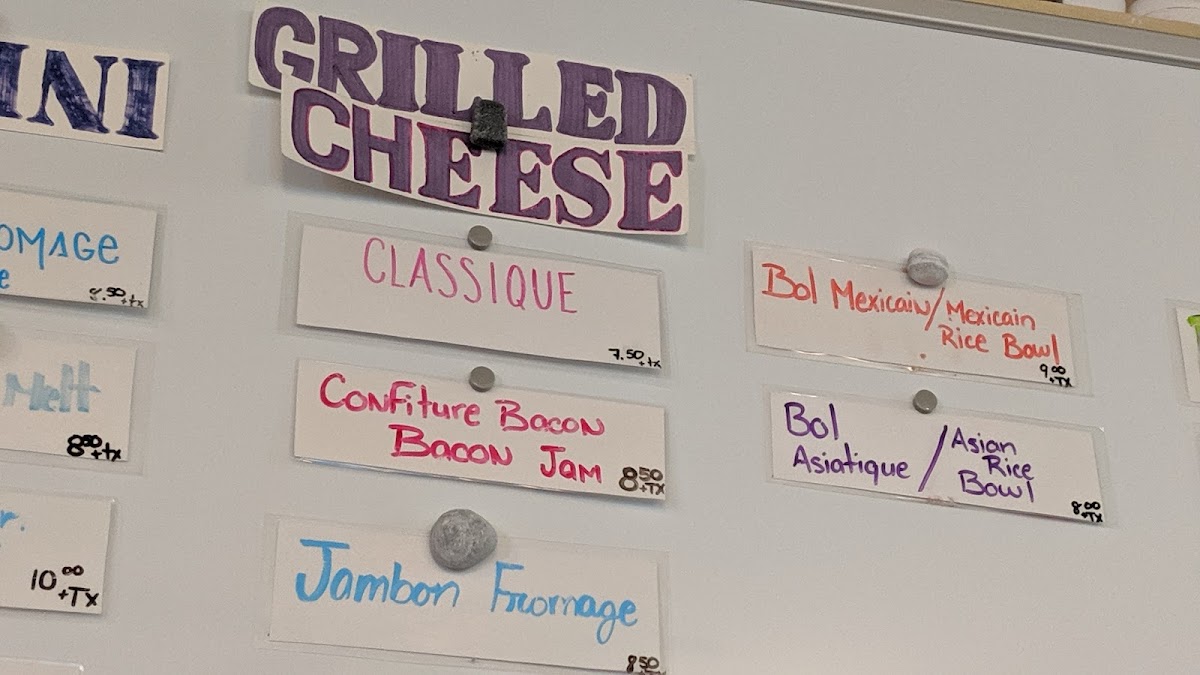 INI
OMAGE
e
8.50+tx
Melt
8.50+tx
r.
10.00
+Tx
GRILLED
CHEESE
CLASSIQUE
7.50+tx
Confiture Bacon
Bacon Jam
8.50
+TX
Jambon Fromage
8.50
Bol Mexicain/Mexicain
Rice Bowl
9.00
+TX
Bol
Asiatique / Asian
Rice
Bowl
8.00
+Tx